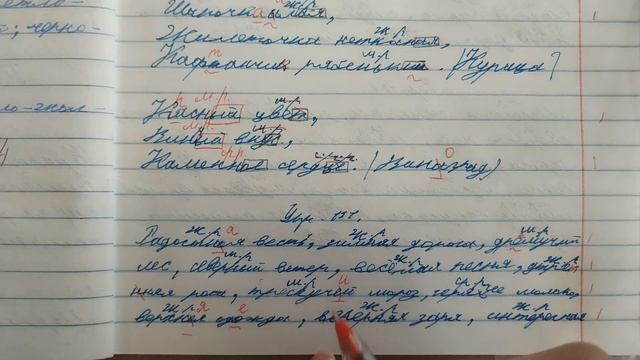 Шапочка алая,
Жилеточка нетканая,
Кафтанчик рябенький. (Курица)
Красный цвет,
Винный вкус,
Каменное сердце. (Виноград)
Упр. 177.
Радостная весть, зимняя дорога, дремучий
лес, северный ветер, весёлая песня, утрен-
няя роса, трескучий мороз, горячее молоко,
верхняя одежда, вечерняя заря, интересная